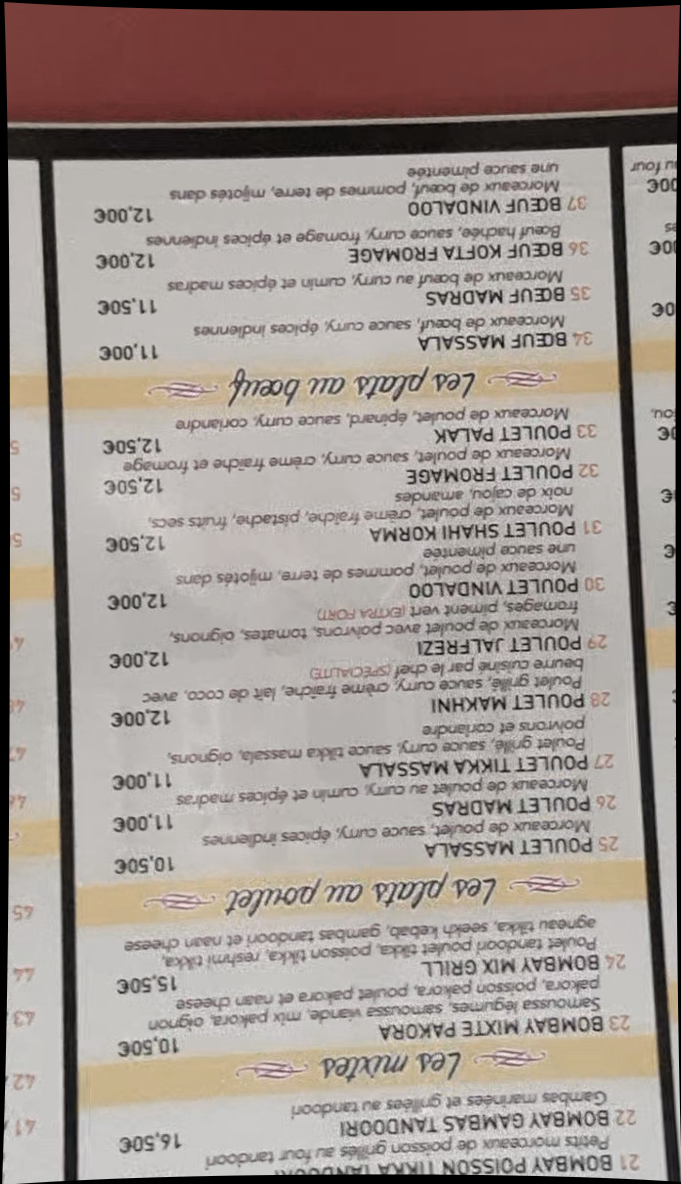 21 BOMBAY POISSON TIKKA TANDOORI
Petits morceaux de poisson grillés au four tandoori
22 BOMBAY GAMBAS TANDOORI 16,50€
Gambas marinées et grillées au tandoori
Les mixtes
23 BOMBAY MIXTE PAKORA 10,50€
Samoussa légumes, samoussa viande, mix pakora, oignon
pakora, poisson pakora, poulet pakora et naan cheese
24 BOMBAY MIX GRILL 15,50€
Poulet tandoori poulet tikka, poisson tikka, reshmi tikka,
agneau tikka, seekh kebab, gambas tandoori et naan cheese
Les plats au poulet
25 POULET MASSALA 10,50€
Morceaux de poulet, sauce curry, épices indiennes
26 POULET MADRAS 11,00€
Morceaux de poulet au curry, cumin et épices madras
27 POULET TIKKA MASSALA 11,00€
Poulet grillé, sauce curry, sauce tikka massala, oignons,
poivrons et coriandre
28 POULET MAKHNI 12,00€
Poulet grillé, sauce curry, crème fraîche, lait de coco, avec
beurre cuisiné par le chef (SPÉCIALITÉ)
29 POULET JALFREZI 12,00€
Morceaux de poulet avec poivrons, tomates, oignons,
fromages, piment vert (EXTRA FORT)
30 POULET VINDALOO 12,00€
Morceaux de poulet, pommes de terre, mijotés dans
une sauce pimentée
31 POULET SHAHI KORMA 12,50€
Morceaux de poulet, crème fraîche, pistache, fruits secs,
noix de cajou, amandes
32 POULET FROMAGE 12,50€
Morceaux de poulet, sauce curry, crème fraîche et fromage
33 POULET PALAK 12,50€
Morceaux de poulet, épinard, sauce curry, coriandre
Les plats au bœuf
34 BŒUF MASSALA 11,00€
Morceaux de bœuf, sauce curry, épices indiennes
35 BŒUF MADRAS 11,50€
Morceaux de bœuf au curry, cumin et épices madras
36 BŒUF KOFTA FROMAGE 12,00€
Bœuf hachée, sauce curry, fromage et épices indiennes
37 BŒUF VINDALOO 12,00€
Morceaux de bœuf, pommes de terre, mijotés dans
une sauce pimentée
41
42
43
44
45
47
au four